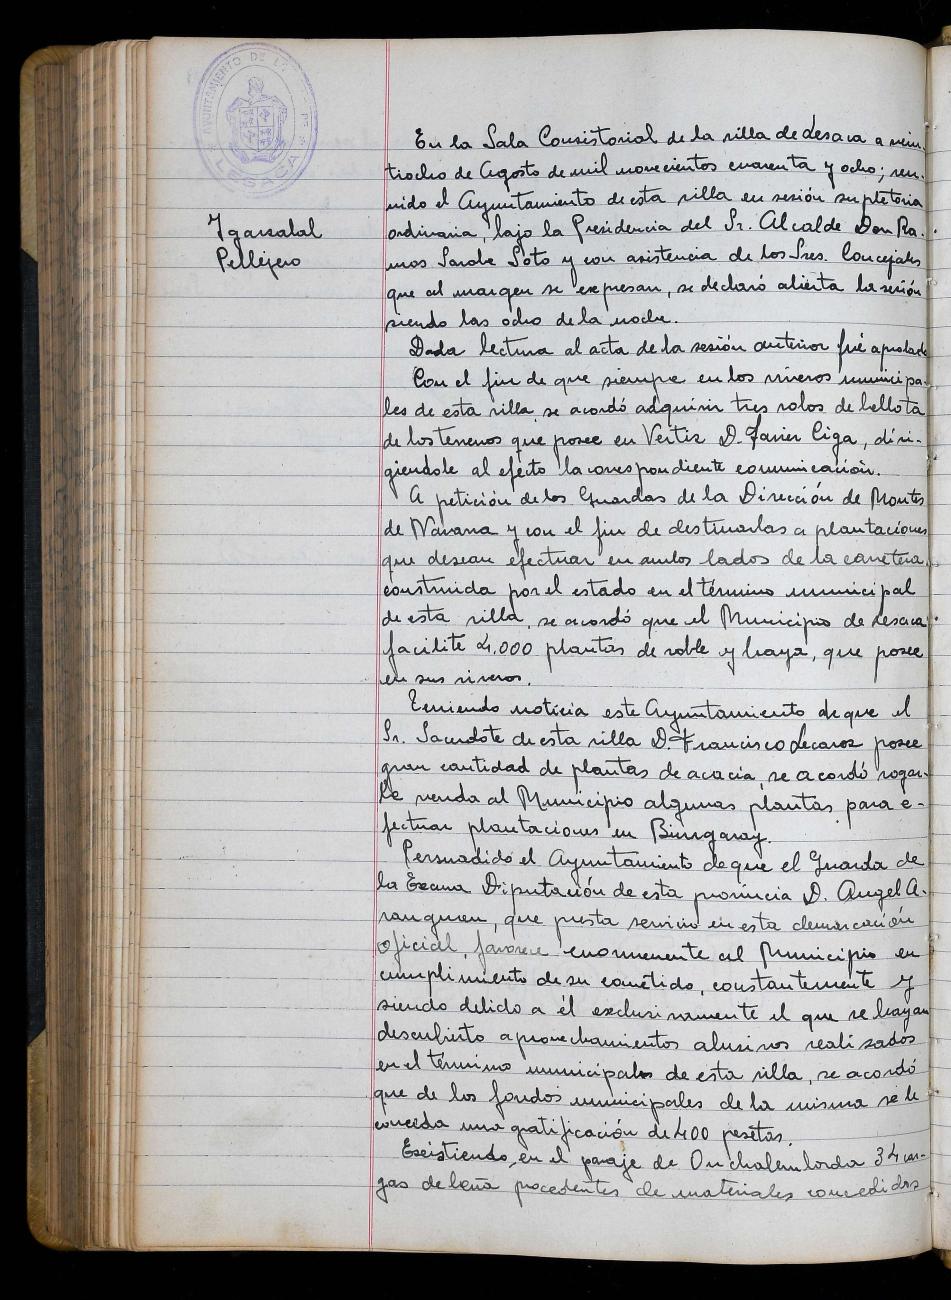 AYUNTAMIENTO DE LA
LESACA
Ygarzabal
Pellejero
En la Sala Consistorial de la villa de Lesaca a vein-
tiocho de Agosto de mil novecientos cuarenta y ocho; reu-
nido el Ayuntamiento de esta villa en sesión supletoria
ordinaria, bajo la Presidencia del Sr. Alcalde Don Ra-
mos Sarobe Soto y con asistencia de los Sres. Concejales
que al margen se expresan, se declaró abierta la sesión
siendo las ocho de la noche.
Dada lectura al acta de la sesión anterior fué aprobada
Con el fin de que siempre en los viveros municipa-
les de esta villa, se acordó adquirir tres robos de bellota
de los terrenos que posee en Vertiz D. Javier Ciga, diri-
giendole al efecto la correspondiente comunicación.
A petición de los Guardas de la Dirección de Montes
de Navarra y con el fin de destinarlas a plantaciones
que desean efectuar en ambos lados de la carretera
construida por el estado en el término municipal
de esta villa, se acordó que el Municipio de Lesaca
facilite 4.000 plantas de roble y haya, que posee
en sus viveros.
Teniendo noticia este Ayuntamiento de que el
Sr. Sacerdote de esta villa D. Francisco Lecaroz posee
gran cantidad de plantas de acacia, se acordó rogar-
le venda al Municipio algunas plantas para e-
fectuar plantaciones en Biurgaray.
Persuadido el Ayuntamiento de que el Guarda de
la Excma Diputación de esta provincia D. Angel A-
ranguren, que presta servicio en esta demarcación
oficial, favorece enormenente al Municipio en
cumplimiento de su cometido, constantemente y
siendo debido a él exclusivamente el que se hayan
descubierto aprovechamientos abusivos realizados
en el término municipal de esta villa, se acordó
que de los fondos municipales de la misma se le
conceda una gratificación de 400 pesetas.
Existiendo, en el paraje de Onchalenborda 34 car-
gas de leña procedentes de materiales concedidos